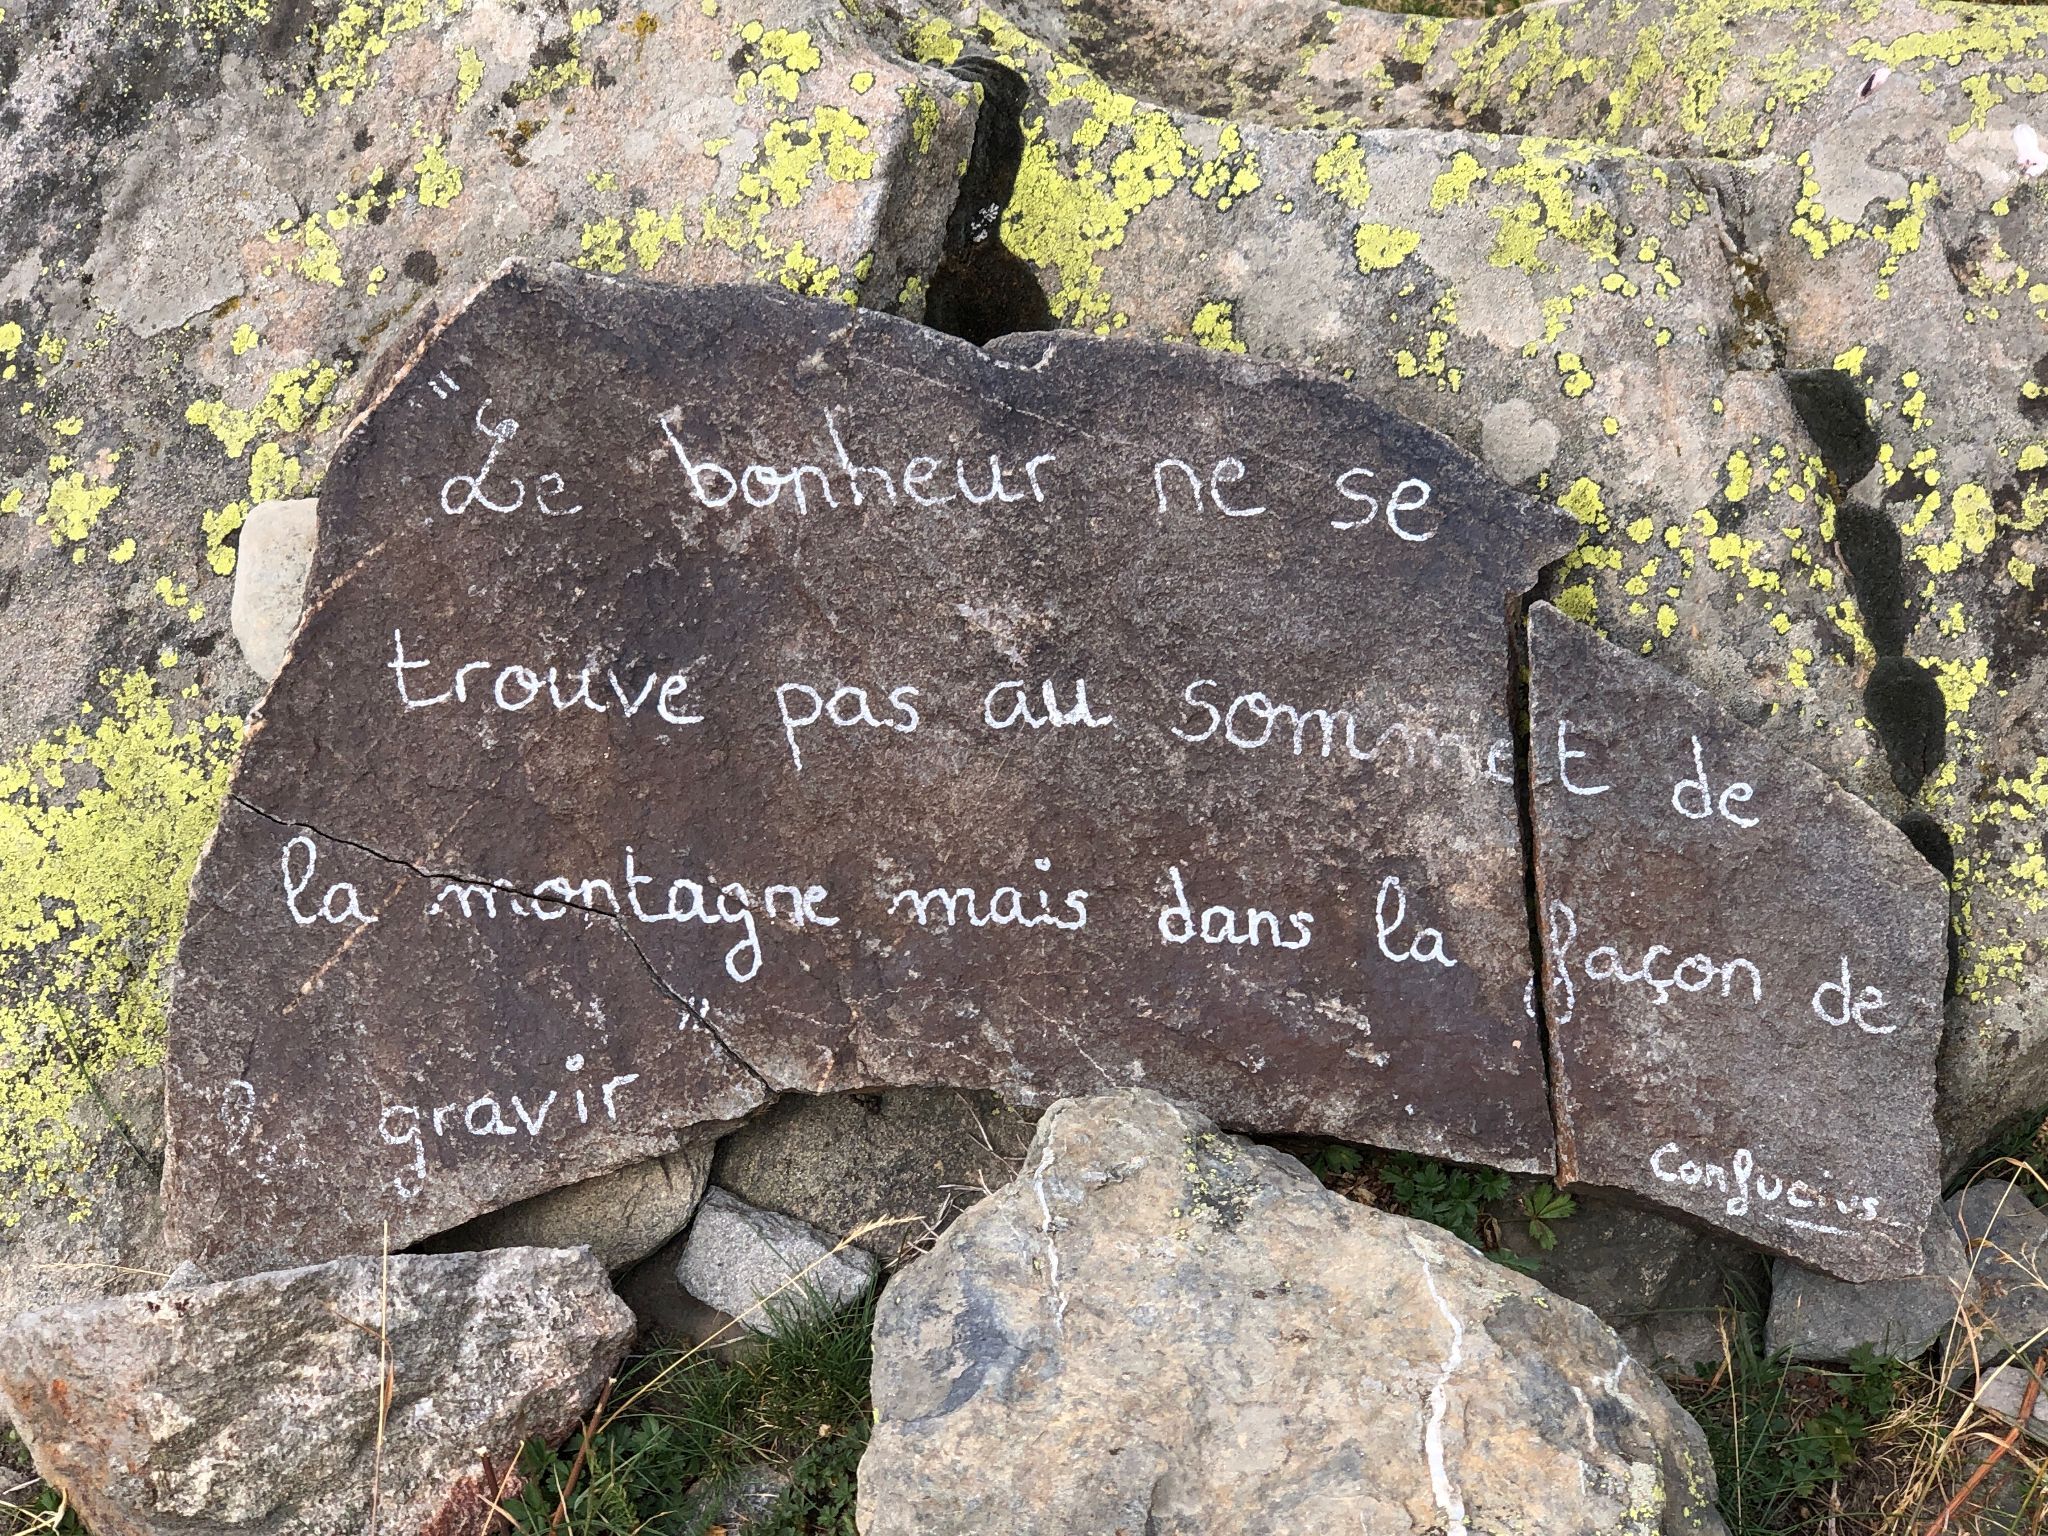 "Le bonheur ne se
trouve pas au sommet de
la montagne mais dans la façon de
la gravir"
Confucius